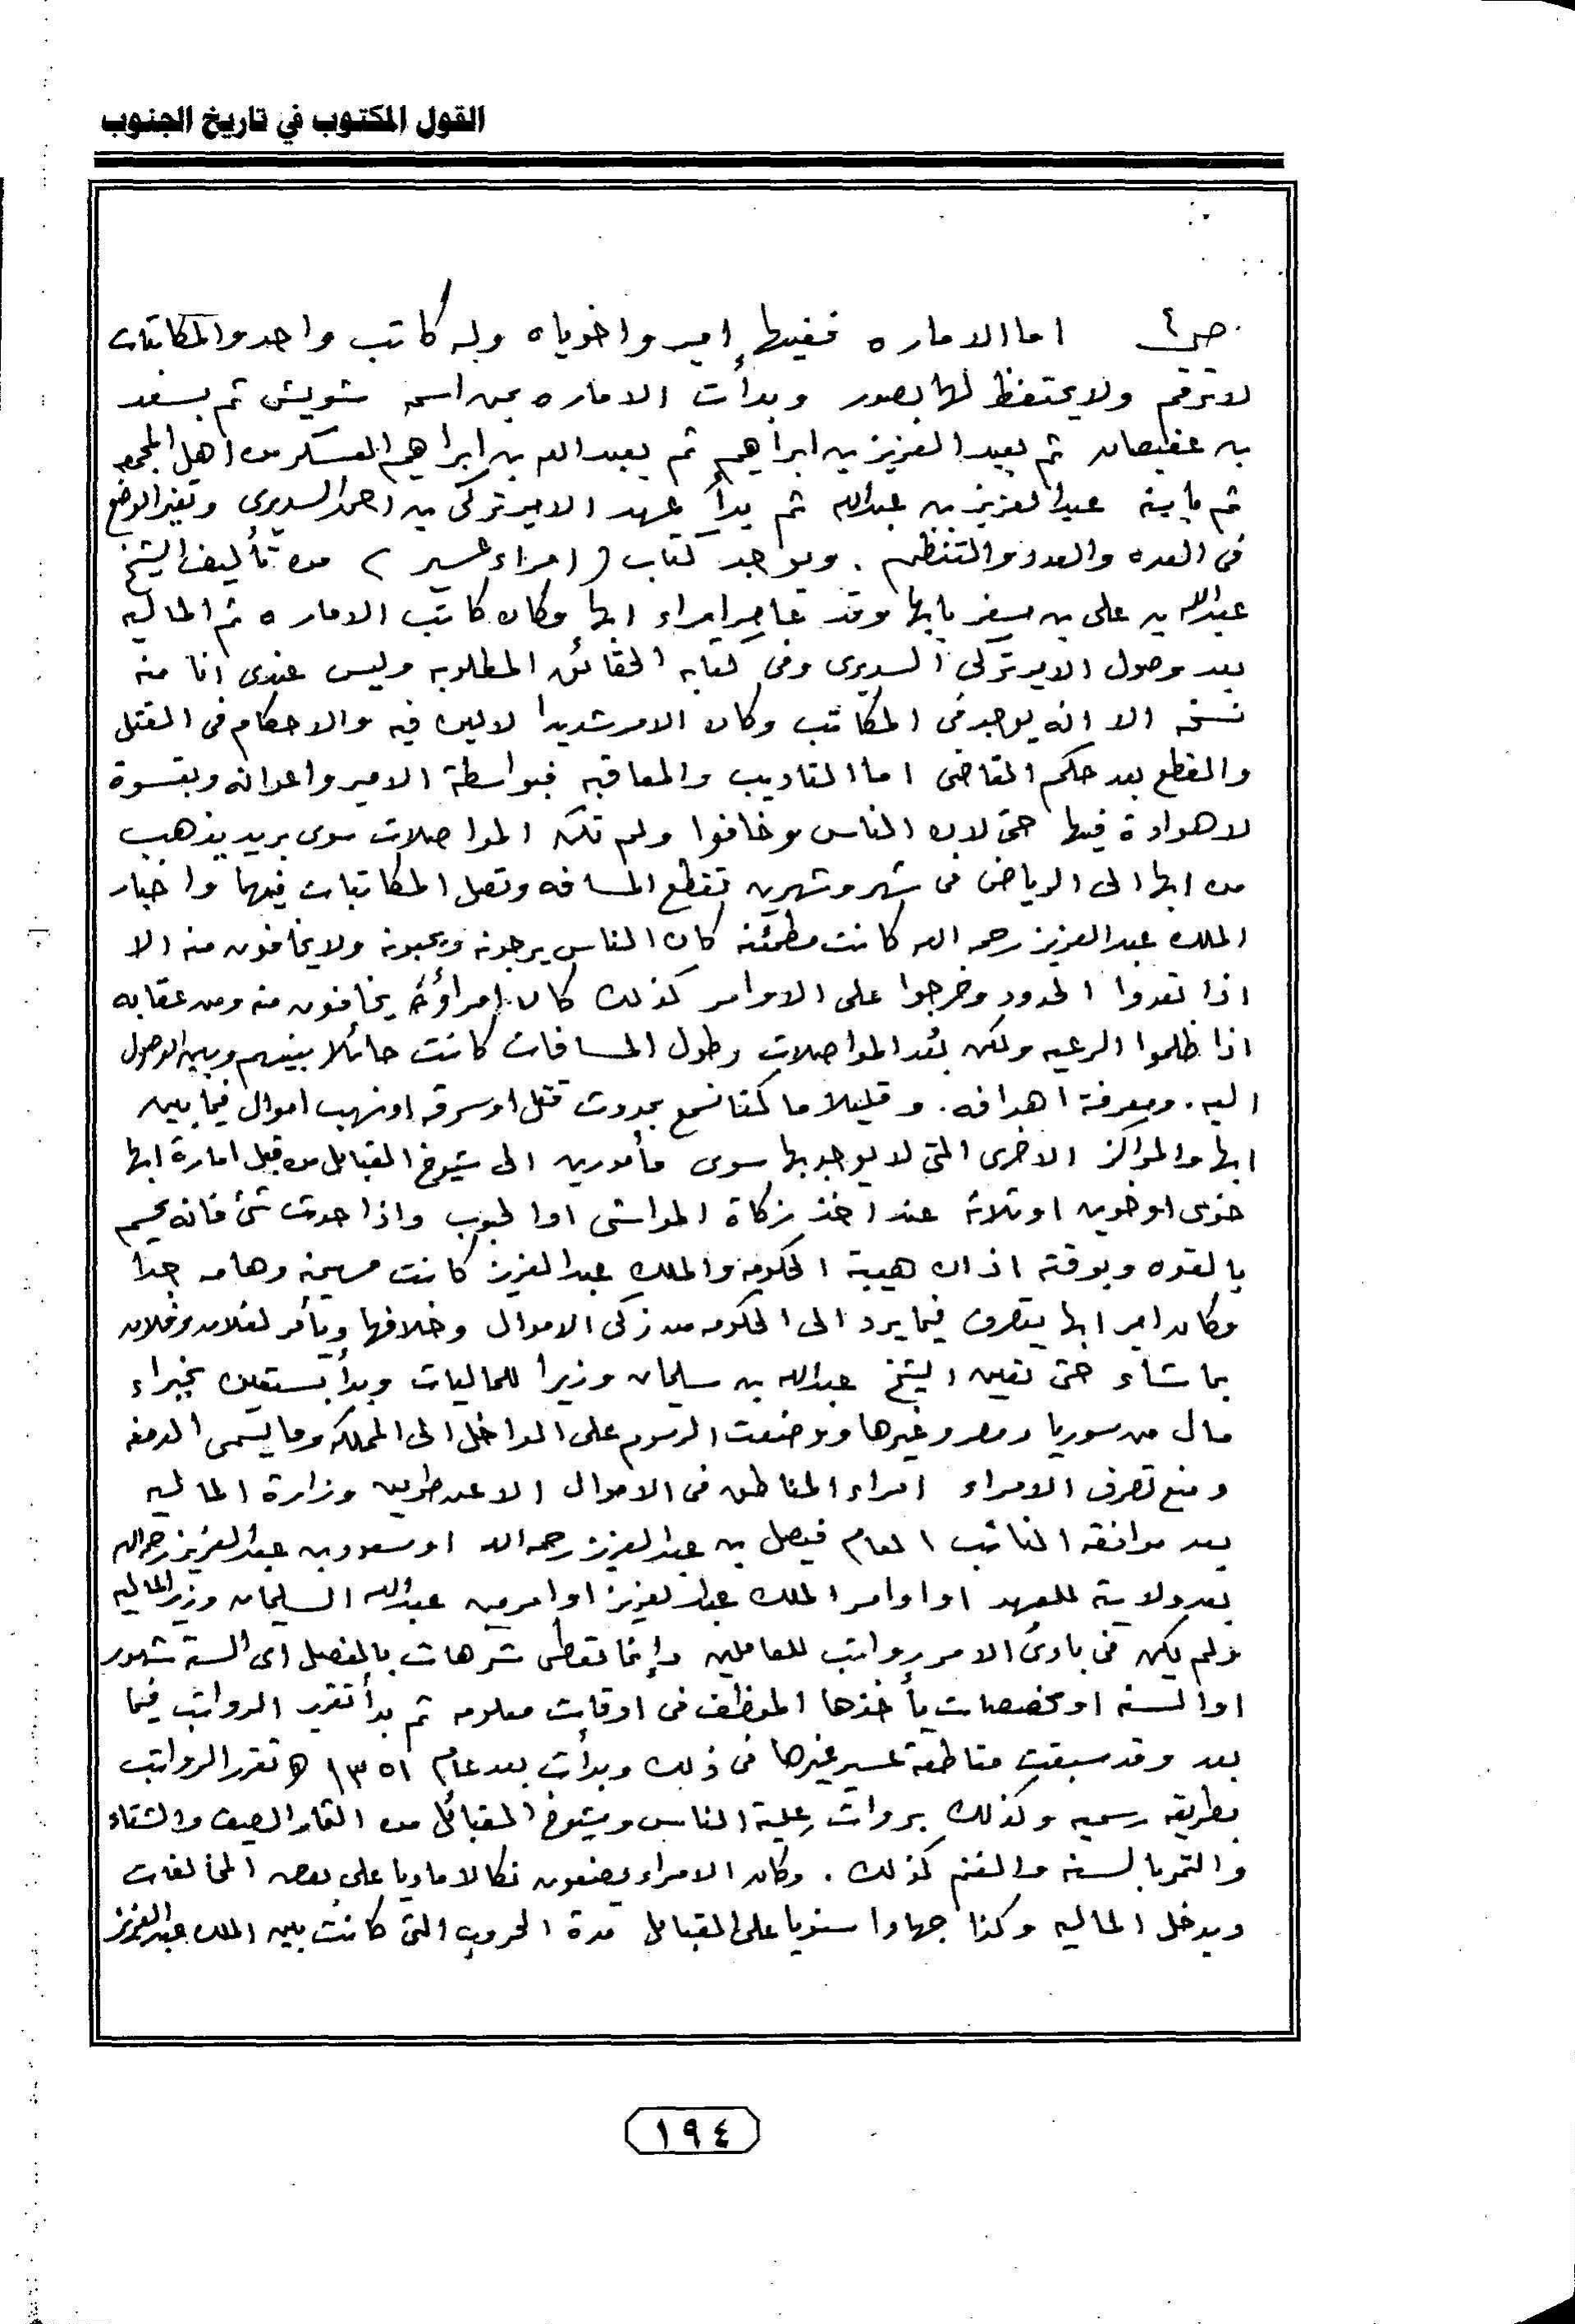 القول المكتوب في تاريخ الجنوب
ص٤ اما الاماره ففيها امير واخوياه وله كاتب واحد والمكاتبات
لا ترقم ولا يحتفظ لها بصور وبدأت الاماره بمن اسمه شويش ثم بسعد
بن عفيصان ثم بعبد العزيز بن ابراهيم ثم بعبد الله بن ابراهيم العسكر من اهل المجمعه
ثم بابنه عبد العزيز بن عبد الله ثم بدأ عهد الامير تركي بن احمد السديري وتغير الوضع
في العده والعدد والتنظيم . ويوجد كتاب ( امراء عسير ) من تأليف الشيخ
عبد الله بن علي بن مسفر بابها وقد عاصر امراء ابها وكان كاتب الاماره ثم الماليه
بعد وصول الامير تركي السديري وفي كتابه الحقائق المطلوبه وليس عندي انا منه
نسخه الا انه يوجد في المكاتب وكان الامر شديدا لا لين فيه والاحكام في القتل
والقطع بعد حكم القاضي اما التاديب والمعاقبه فبواسطة الامير واعوانه وبقسوة
لا هوادة فيها حتى لان الناس وخافوا ولم تكن المواصلات سوى بريد يذهب
من ابها الى الرياض في شهر وشهرين تقطع المسافه وتصل المكاتبات فيهما واخبار
الملك عبد العزيز رحمه الله كانت مطمئنه كان الناس يرجونه ويحبونه ولا يخافون منه الا
اذا تعدوا الحدود وخرجوا على الاوامر كذلك كان امراؤه يخافون منه ومن عقابه
اذا ظلموا الرعيه ولكن بعد المواصلات وطول المسافات كانت حائلا بينهم وبين الوصول
اليه . ومعرفة اهدافه . وقليلا ما كنا نسمع بحدوث قتل او سرقه او نهب اموال فيما بين
ابها والمراكز الاخرى التي لا يوجد بها سوى مأمورين الى شيوخ القبائل من قبل امارة ابها
خوي او خوين او ثلاثه عند اخذ زكاة المواشي او الحبوب واذا حدث شئ فانه يحسم
بالقوه وبوقته اذ ان هيبة الحكومه والملك عبد العزيز كانت مهيمنه وهامه جدا
وكان امير ابها يتصرف فيما يرد الى الحكومه من زكى الاموال وخلافها ويأمر لفلان وفلان
بما شاء حتى تعين الشيخ عبد الله بن سليمان وزيرا للماليات وبدأ يستعين بخبراء
مال من سوريا ومصر وغيرها ووضعت الرسوم على الداخل الى المملكه وما يسمى الدمغه
ومنع تصرف الامراء امراء المناطق في الاموال الا عن طريق وزارة الماليه
بعد موافقه النائب العام فيصل بن عبد العزيز رحمه الله او سعود بن عبد العزيز رحمه الله
بعد ولاية للعهد او اوامر الملك عبد العزيز او امر من عبد الله السليمان وزير الماليه
ولم يكن في بادئ الامر رواتب للعاملين وإنما تعطى شرهات بالفصل اى الستة شهور
او السنه او مخصصات يأخذها الموظف في اوقات معلومه ثم بدأ تقرير الرواتب فيما
بعد وقد سبقت مقاطعة عسير غيرها في ذلك وبدأت بعد عام ١٣٥١ هـ تقرر الرواتب
بطريقه رسميه وكذلك بروات علية الناس وشيوخ القبائل من القاد الصيف والشتاء
والتمر بالسنه والغنم كذلك . وكان الامراء يضعون نكالا ماديا على بعض المخالفات
ويدخل الماليه وكذا جهادا سنويا على القبائل مدة الحروب التي كانت بين الملك عبد العزيز
١٩٤